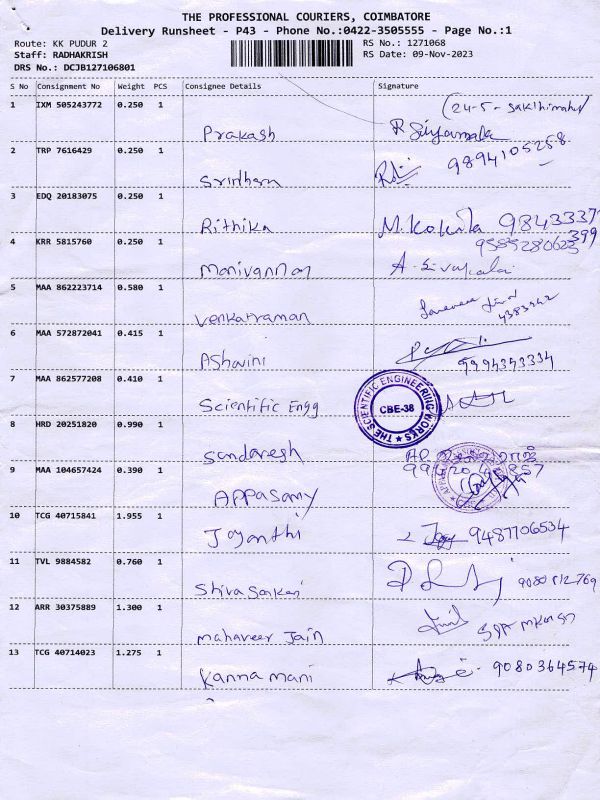 THE PROFESSIONAL COURIERS, COIMBATORE
Delivery Runsheet - P43 - Phone No.:0422-3505555 - Page No.:1
Route: KK PUDUR 2
RS No.: 1271068
Staff: RADHAKRISH
RS Date: 09-Nov-2023
DRS No.: DCJB127106801
S No Consignment No Weight PCS Consignee Details Signature
1 IXM 505243772 0.250 1
Prakash R Sivyamala
2 TRP 7616429 0.250 1 9894105258
Sridharn
3 EDQ 20183075 0.250 1
Rithika M. Kokila
4 KRR 5815760 0.250 1
Manivannan A. Sivakala
5 MAA 862223714 0.580 1
Venkatraman
6 MAA 572872041 0.415 1
Ashwini 9994353334
7 MAA 862577208 0.410 1
Scientific Engg
THE SCIENTIFIC ENGINEERING WORKS
CBE-38
8 HRD 20251820 0.990 1
Sundaresh
9 MAA 104657424 0.390 1
APPasamy
10 TCG 40715841 1.955 1
Jayanthi 9487706534
11 TVL 9884582 0.760 1
Shiva Sankari
12 ARR 30375889 1.300 1
Mahaveer Jain
13 TCG 40714023 1.275 1
Kanna mani 9080364574